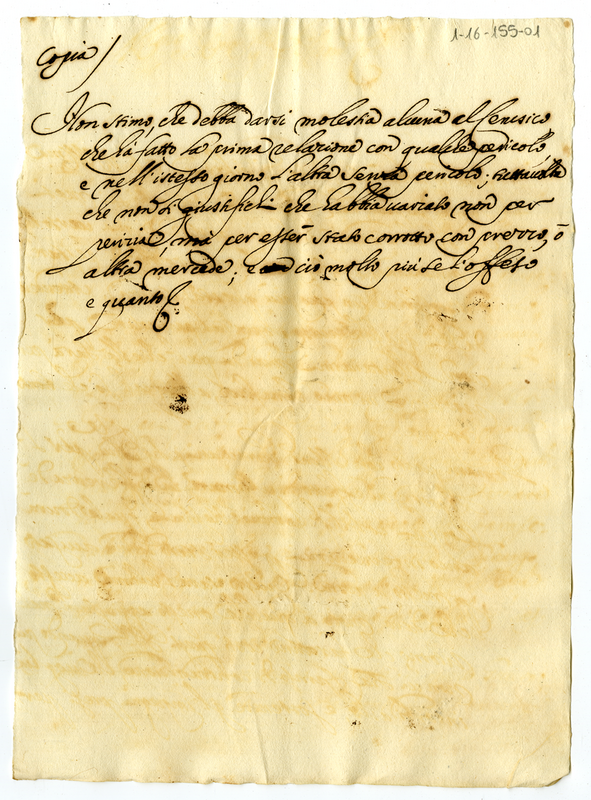 1-16-155-01
Copia /
Non stimo, che debba darsi molestia alcuna al Cerusico
che hà fatto la prima relazione con qualche pericolo
e nell'istesso giorno l'altra senza pericolo; tuttavolta
che non si giustifichi che habbia variato non per
perizia, mà per esser stato corrotto con prezzo, ò
altra mercede; ciò molto più se l'offeso
e quanto